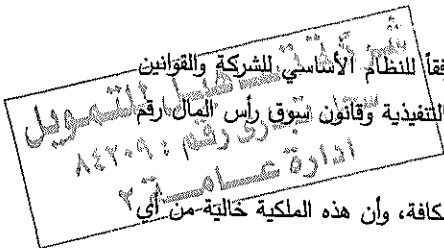 فقاً للنظام الأساسي للشركة والقوانين
لتنفيذية وقانون سوق رأس المال رقم
كافة، وأن هذه الملكية خالية من أي
شركة تسهيل للتمويل
سجل تجارى رقم : ٨٤٢٠٩
ادارة عامة ٢